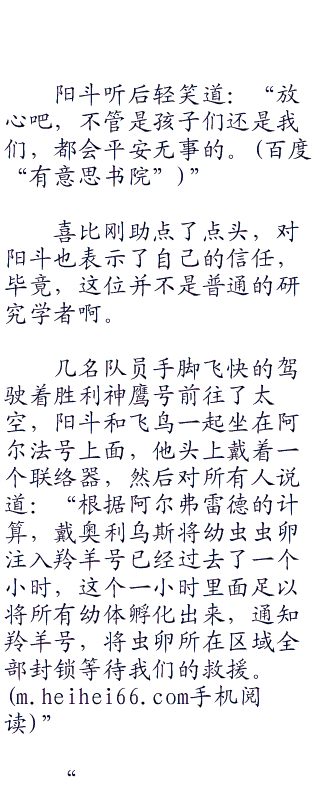 阳斗听后轻笑道：“放
心吧，不管是孩子们还是我
们，都会平安无事的。(百度
“有意思书院”)”
喜比刚助点了点头，对
阳斗也表示了自己的信任，
毕竟，这位并不是普通的研
究学者啊。
几名队员手脚飞快的驾
驶着胜利神鹰号前往了太
空，阳斗和飞鸟一起坐在阿
尔法号上面，他头上戴着一
个联络器，然后对所有人说
道：“根据阿尔弗雷德的计
算，戴奥利乌斯将幼虫虫卵
注入羚羊号已经过去了一个
小时，这个一小时里面足以
将所有幼体孵化出来，通知
羚羊号，将虫卵所在区域全
部封锁等待我们的救援。
(m.heihei66.com手机阅
读)”
“